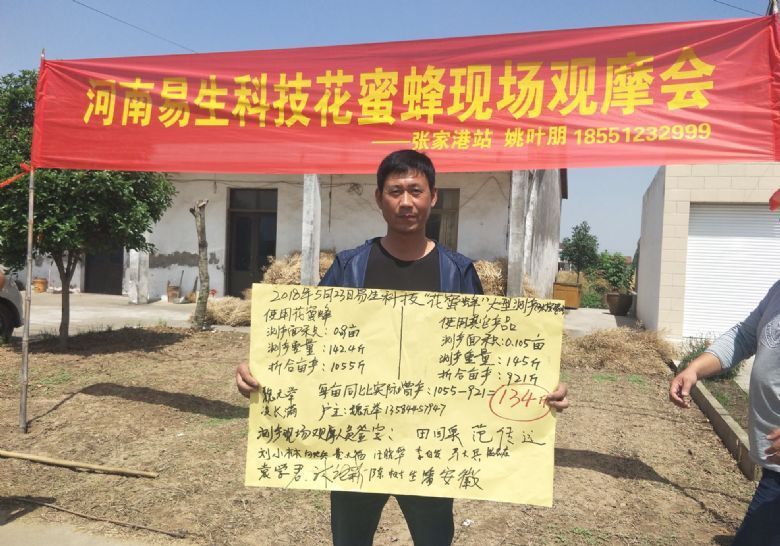 河南易生科技花蜜蜂现场观摩会
——张家港站 姚叶朋 18551232999
2018年5月23日易生科技"花蜜蜂"大型测产
使用花蜜蜂
测产面积: 亩
测产重量: 142.4斤
折合亩产: 1055斤
使用其它产品
测产面积: 0.105亩
测产重量: 145斤
折合亩产: 921斤
每亩同比实际增产: 1055-921=134斤
户主: 魏元举 13584457947
测产现场观摩人员签字: 田同泉 范传运
刘小林
袁学君 陈树生 潘安徽